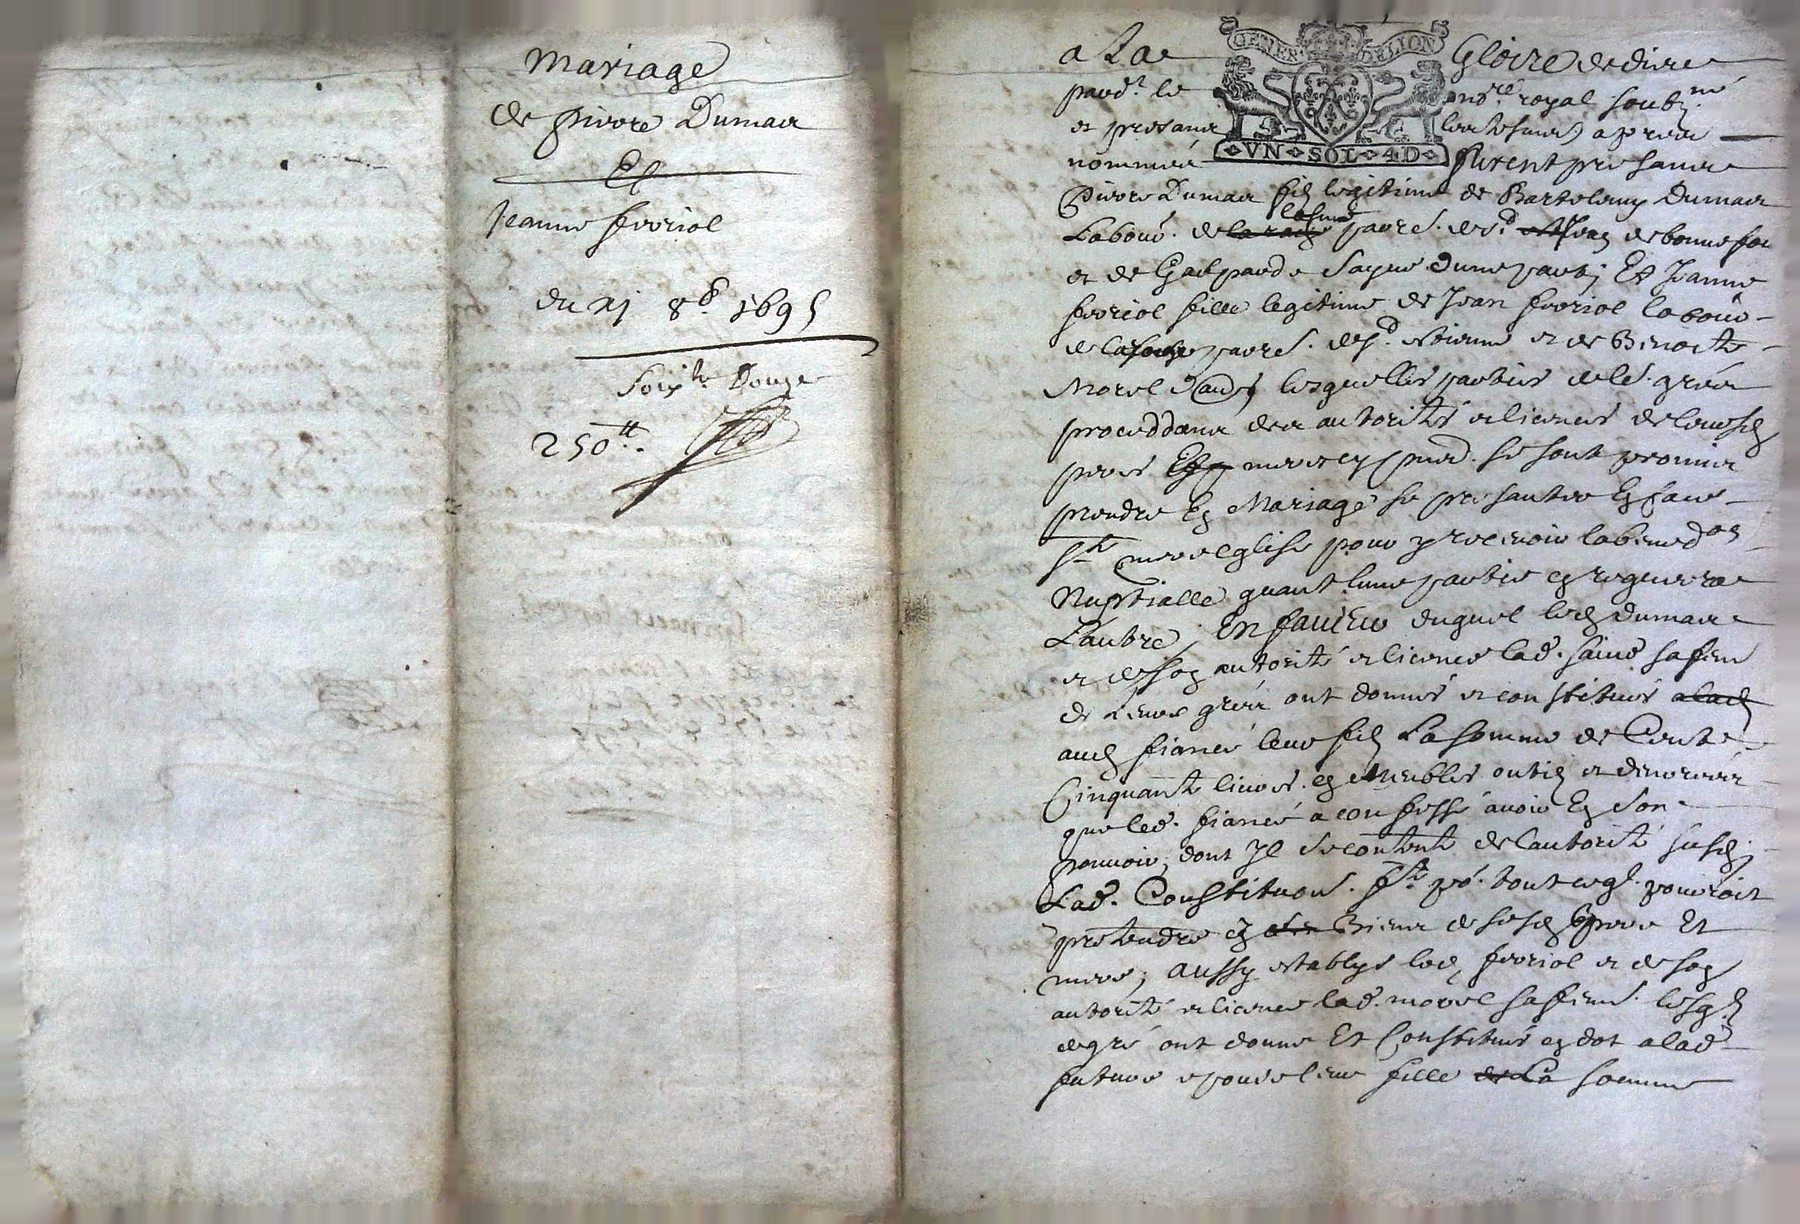 mariage
de pierre Dumas
Et
Jeanne ferriol
du xj 8b. 1695
Soixte Douze
250tt.
GENER DE LION
VN SOL 4D
a La Gloire de dieu
pard.t le no.re royal soubz.né
et presance des tesmoins apres
nommés furent presans
Pierre Dumas fils legitime de Bartelemy Dumas
Labour. de parois. de s.t Jean de bonnefon
et de Gasparde Sayue dune part, Et Jeanne
ferriol fille legitime de Jean ferriol labour
de parois. de s.t estienne et de Benoite
Morel dautre lesquelles parties de le. grées
proceddans des autorités et licences de leursd.
peres meres cy pnd. se sont promis
prendre En Mariage se presanter En face
S.te mere eglise pour y recevoir la bened.on
Nuptialle quant lune partie en requerera
Lautre, En faveur duquel led. dumas
et de son autorité et licence lad. saiue sa feme
de Leurs grées ont donnés et constitués alad.
aud. fiancé leur fils La somme de Cent
Cinquante livres en Meubles outils et denrées
que led. fiancé a confessé avoir En son
pouvoir, dont Il se contente de lautorité susd.
Lad. Constituon. f.te po. tout ce q. pourroit
pretendre en Biens de sesd. pere Et
mere; aussy establys led. ferriol et de son
autorité et licence lad. morel sa feme. lesq.ls
de gré ont donné Et Constitués en dot alad.
future epouse leur fille de La somme